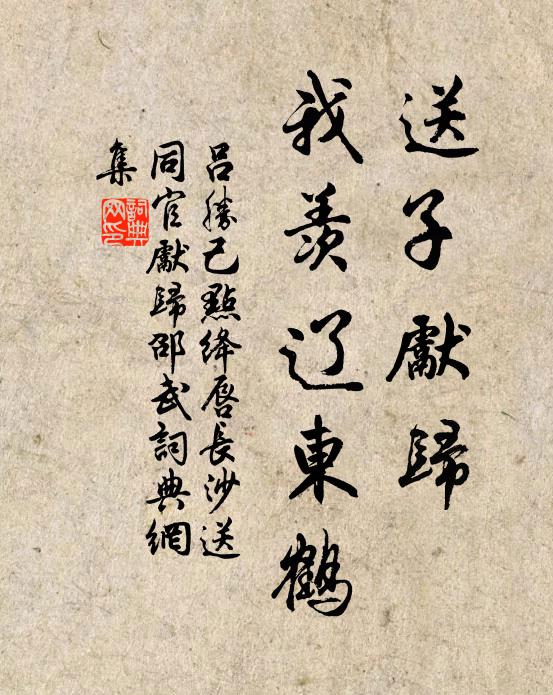 送子獻歸
我羨辽東鶴
呂勝己點絳唇長沙送
同官獻歸邵武詞典網
集
詞典
网印